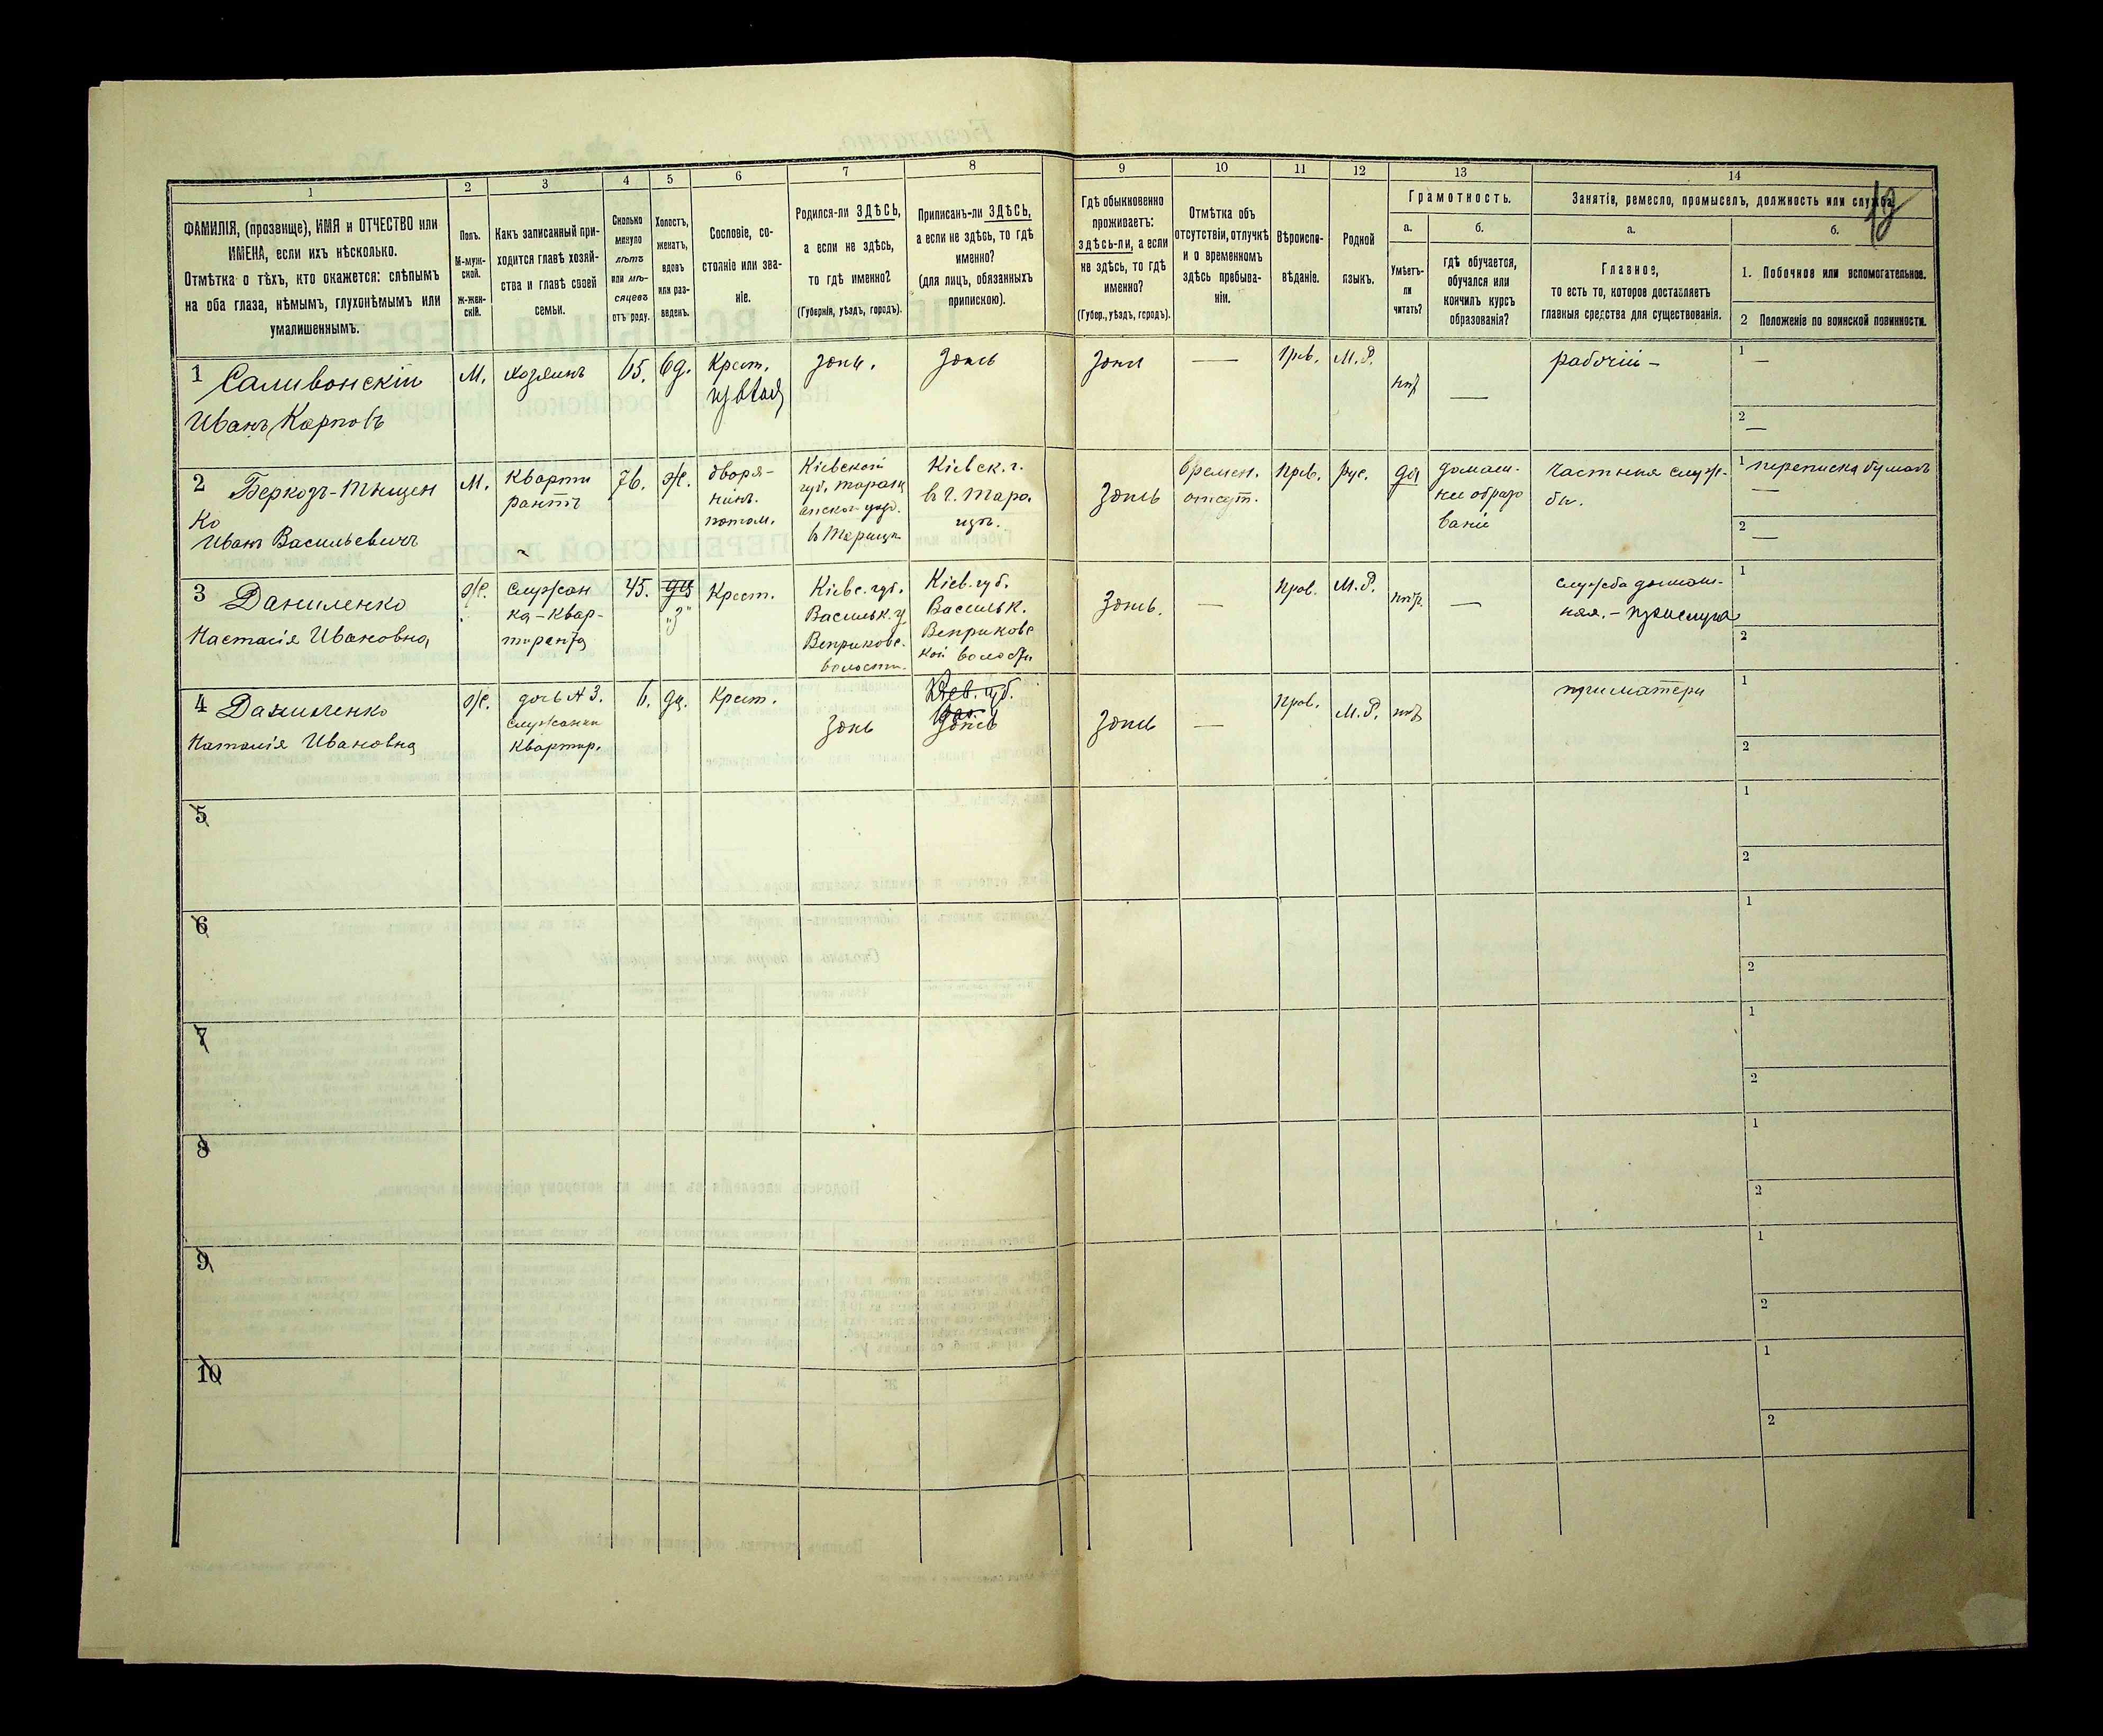 1
2
3
4
5
6
7
8
9
10
11
12
13
14
ФАМИЛІЯ, (прозвище), ИМЯ и ОТЧЕСТВО или
ИМЕНА, если ихъ нѣсколько.
Отмѣтка о тѣхъ, кто окажется: слѣпымъ
на оба глаза, нѣмымъ, глухонѣмымъ или
умалишеннымъ.
Полъ.
М-муж-
ской.
ж-жен-
скій.
Какъ записанный при-
ходится главѣ хозяй-
ства и главѣ своей
семьи.
Сколько
минуло
лѣтъ
или мѣ-
сяцевъ
отъ роду.
Холостъ,
женатъ,
вдовъ
или раз-
веденъ.
Сословіе, со-
стояніе или зва-
ніе.
Родился-ли ЗДѢСЬ,
а если не здѣсь,
то гдѣ именно?
(Губернія, уѣздъ, городъ).
Приписанъ-ли ЗДѢСЬ,
а если не здѣсь, то гдѣ
именно?
(для лицъ, обязанныхъ
припискою).
Гдѣ обыкновенно
проживаетъ:
здѣсь-ли, а если
не здѣсь, то гдѣ
именно?
(Губер., уѣздъ, городъ).
Отмѣтка объ
отсутствіи, отлучкѣ
и о временномъ
здѣсь пребыва-
ніи.
Вѣроиспо-
вѣданіе.
Родной
языкъ.
Грамотность.
а.
Умѣетъ-
ли
читать?
б.
гдѣ обучается,
обучался или
кончилъ курсъ
образованія?
Занятіе, ремесло, промыселъ, должность или служба.
а.
Главное,
то есть то, которое доставляетъ
главныя средства для существованія.
б.
1. Побочное или вспомогательное.
2 Положеніе по воинской повинности.
1 Саливонскій
Иванъ Карповъ
М.
хозяинъ
65.
вд.
Крест.
здѣсь.
здѣсь
здѣсь
—
Прв.
М.Р.
нѣт
—
рабочій -
1
—
2
—
2
Ко
Иванъ Васильевичъ
М.
Кварти
рантъ
76.
ж.
дворя-
нинъ.
потом.
Кіевской
губ. Таращ
анског уѣзд.
в Таращѣ
Кіевск. г.
в г. Тара.
щѣ.
здѣсь
времен.
отсут.
Прв.
рус.
да
домаш-
нее образо
ваніе
частная служ-
ба.
1 переписка бумагъ
—
2
—
3 Даниленко
Настасія Ивановна
ж.
служан
ка - квар-
тиранта
45.
"З"
Крест.
Кіевс. губ.
Васильк. у.
Веприковс.
волости.
Кіев. губ.
Васильк.
Веприковс
кой волости
здѣсь.
—
Прав.
М.Р.
нѣт.
—
служба домаш-
няя. - прислуга
1
2
4 Даниленко
Наталія Ивановна
ж.
дочь № 3.
служанки
квартир.
6.
дѣ.
Крест.
здѣсь
Кіев. губ.
здѣсь
здѣсь
—
Прав.
М.Р.
нѣт
при матери
1
2
5
1
2
6
1
2
7
1
2
8
1
2
9
1
2
10
1
2